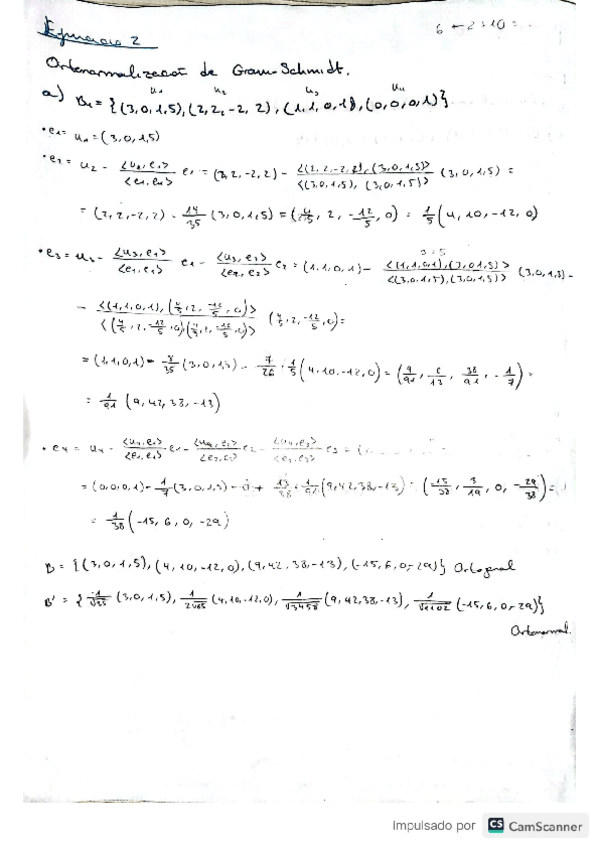 6 ← 2 = 10 =
Ejercicio 2
Ortonormalización de Gram-Schmidt.
u1 u2 u3 u4
a) B1 = {(3,0,1,5), (2,2,-2,2), (1,1,0,1), (0,0,0,1)}
• e1 = u1 = (3,0,1,5)
• e2 = u2 - <u2,e1>/<e1,e1> e1 = (2,2,-2,2) - <(2,2,-2,2),(3,0,1,5)>/<(3,0,1,5),(3,0,1,5)> (3,0,1,5) =
= (2,2,-2,2) - 14/35 (3,0,1,5) = (4/5, 2, -12/5, 0) = 1/5 (4,10,-12,0)
3+5
• e3 = u3 - <u3,e1>/<e1,e1> e1 - <u3,e2>/<e2,e2> e2 = (1,1,0,1) - <(1,1,0,1),(3,0,1,5)>/<(3,0,1,5),(3,0,1,5)> (3,0,1,5) -
- <(1,1,0,1),(4/5,2,-12/5,0)>/<(4/5,2,-12/5,0)(4/5,2,-12/5,0)> (4/5,2,-12/5,0) =
= (1,1,0,1) - 8/35 (3,0,1,5) - 7/26 · 1/5 (4,10,-12,0) = (9/91, 6/13, 38/91, -1/7) =
= 1/91 (9,42,38,-13)
• e4 = u4 - <u4,e1>/<e1,e1> e1 - <u4,e2>/<e2,e2> e2 - <u4,e3>/<e3,e3> e3 = (
= (0,0,0,1) - 1/7 (3,0,1,5) - 0 + 13/38 · 1/91 (9,42,38,-13) = (-15/38, 3/19, 0, -29/38) =
= 1/38 (-15,6,0,-29)
B = {(3,0,1,5), (4,10,-12,0), (9,42,38,-13), (-15,6,0,-29)} Ortogonal
B' = {1/√35 (3,0,1,5), 1/2√65 (4,10,-12,0), 1/√3458 (9,42,38,-13), 1/√1102 (-15,6,0,-29)}
Ortonormal.
Impulsado por CS CamScanner